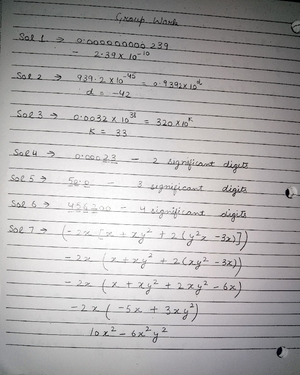 Group Work
Sol 1 → 0.000000000239
- 2.39 x 10⁻¹⁰
Sol 2 → 939.2 x 10⁻⁴⁵ = 0.9392 x 10ᵈ
d = -42
Sol 3 → 0.0032 x 10³⁸ = 320 x 10ᵏ
K = 33
Sol 4 → 0.00023 - 2 significant digits
Sol 5 → 50.0 - 3 significant digits
Sol 6 → 456200 - 4 significant digits
Sol 7 → (-2x [x + xy² + 2(y²x - 3x)])
-2x (x + xy² + 2(xy² - 3x))
-2x (x + xy² + 2xy² - 6x)
-2x (-5x + 3xy²)
10x² - 6x²y²